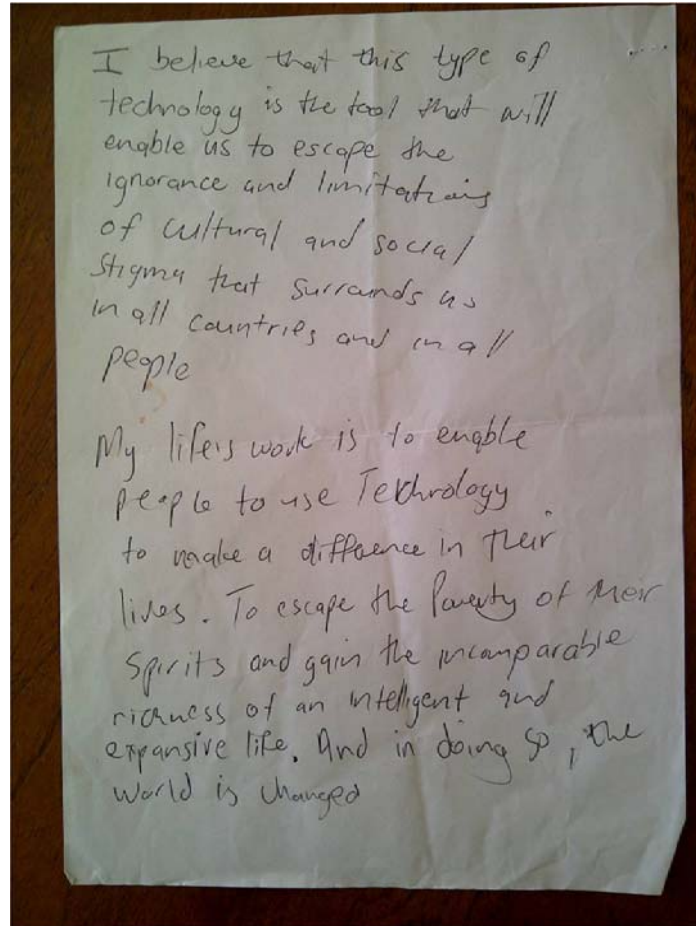 I believe that this type of
technology is the tool that will
enable us to escape the
ignorance and limitations
of cultural and social
stigma that surrounds us
in all countries and in all
people
My life's work is to enable
people to use Technology
to make a difference in their
lives. To escape the Poverty of their
Spirits and gain the incomparable
richness of an intelligent and
expansive life. And in doing so, the
world is changed